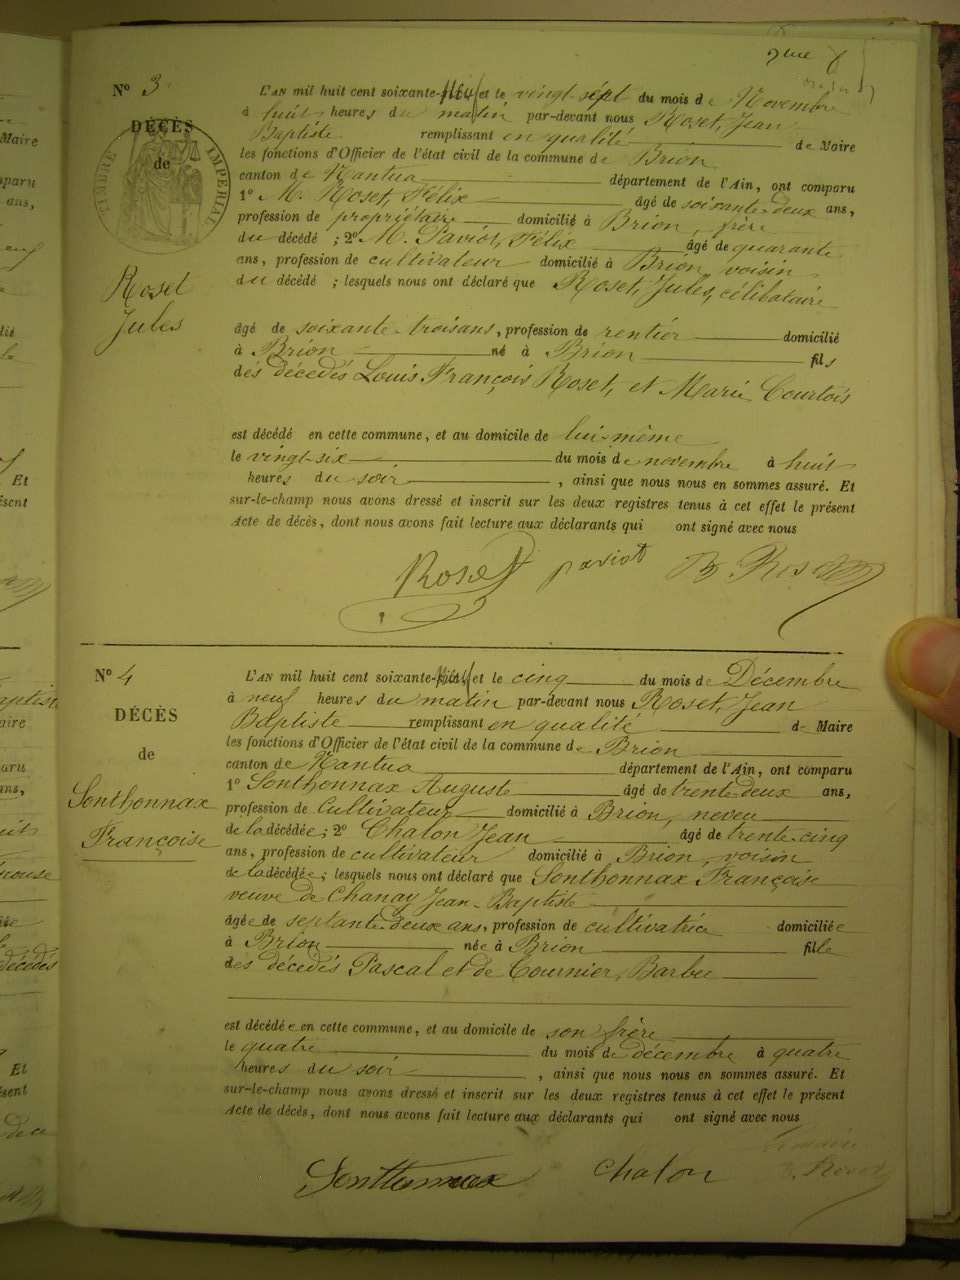 2me
Nº 3.
DÉCÈS
de
TIMBRE IMPÉRIAL
Roset
Jules
L'AN mil huit cent soixante- et le vingt-sept du mois de Novembre
à huit heures du matin par-devant nous Roset, Jean
Baptiste remplissant en qualité de Maire
les fonctions d'Officier de l'état civil de la commune de Brion
canton de Nantua département de l'Ain, ont comparu
1º M. Roset, Félix âgé de soixante-deux ans,
profession de propriétaire domicilié à Brion, frère
du décédé ; 2º M. Paviot, Félix âgé de quarante
ans, profession de cultivateur domicilié à Brion, voisin
du décédé ; lesquels nous ont déclaré que Roset, Jules, célibataire
âgé de soixante-trois ans, profession de rentier domicilié
à Brion né à Brion fils
dés décédés Louis François Roset, et Marie Courtois
est décédé en cette commune, et au domicile de lui-même
le vingt-six du mois de novembre à huit
heures du soir, ainsi que nous nous en sommes assuré. Et
sur-le-champ nous avons dressé et inscrit sur les deux registres tenus à cet effet le présent
Acte de décès, dont nous avons fait lecture aux déclarants qui ont signé avec nous
Roset paviot B Roset
Nº 4
DÉCÈS
de
Sonthonnax
Françoise
L'AN mil huit cent soixante- et le cinq du mois de Décembre
à neuf heures du matin par-devant nous Roset, Jean
Baptiste remplissant en qualité de Maire
les fonctions d'Officier de l'état civil de la commune de Brion
canton de Nantua département de l'Ain, ont comparu
1º Sonthonnax Auguste âgé de trente-deux ans,
profession de Cultivateur domicilié à Brion, neveu
de la décédée ; 2º Chalon Jean âgé de trente-cinq
ans, profession de cultivateur domicilié à Brion, voisin
de la décédée ; lesquels nous ont déclaré que Sonthonnax Françoise
veuve de Chanay Jean-Baptiste
âgée de septante-deux ans, profession de cultivatrice domiciliée
à Brion née à Brion fille
des décédés Pascal et de Cournier, Barbe
est décédée en cette commune, et au domicile de son frère
le quatre du mois de décembre à quatre
heures du soir, ainsi que nous nous en sommes assuré. Et
sur-le-champ nous avons dressé et inscrit sur les deux registres tenus à cet effet le présent
Acte de décès, dont nous avons fait lecture aux déclarants qui ont signé avec nous
Sonthonnax Chalon B. Roset